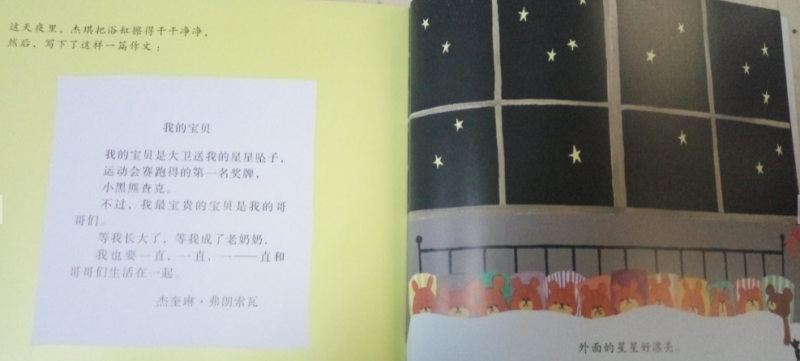 这天夜里，杰琪把浴缸擦得干干净净，
然后，写下了这样一篇作文：
我的宝贝
我的宝贝是大卫送我的星星坠子，
运动会赛跑得的第一名奖牌，
小黑熊查克。
不过，我最宝贵的宝贝是我的哥
哥们。
等我长大了，等我成了老奶奶，
我也要一直，一直，一——直和
哥哥们生活在一起。
杰奎琳·弗朗索瓦
外面的星星好漂亮。